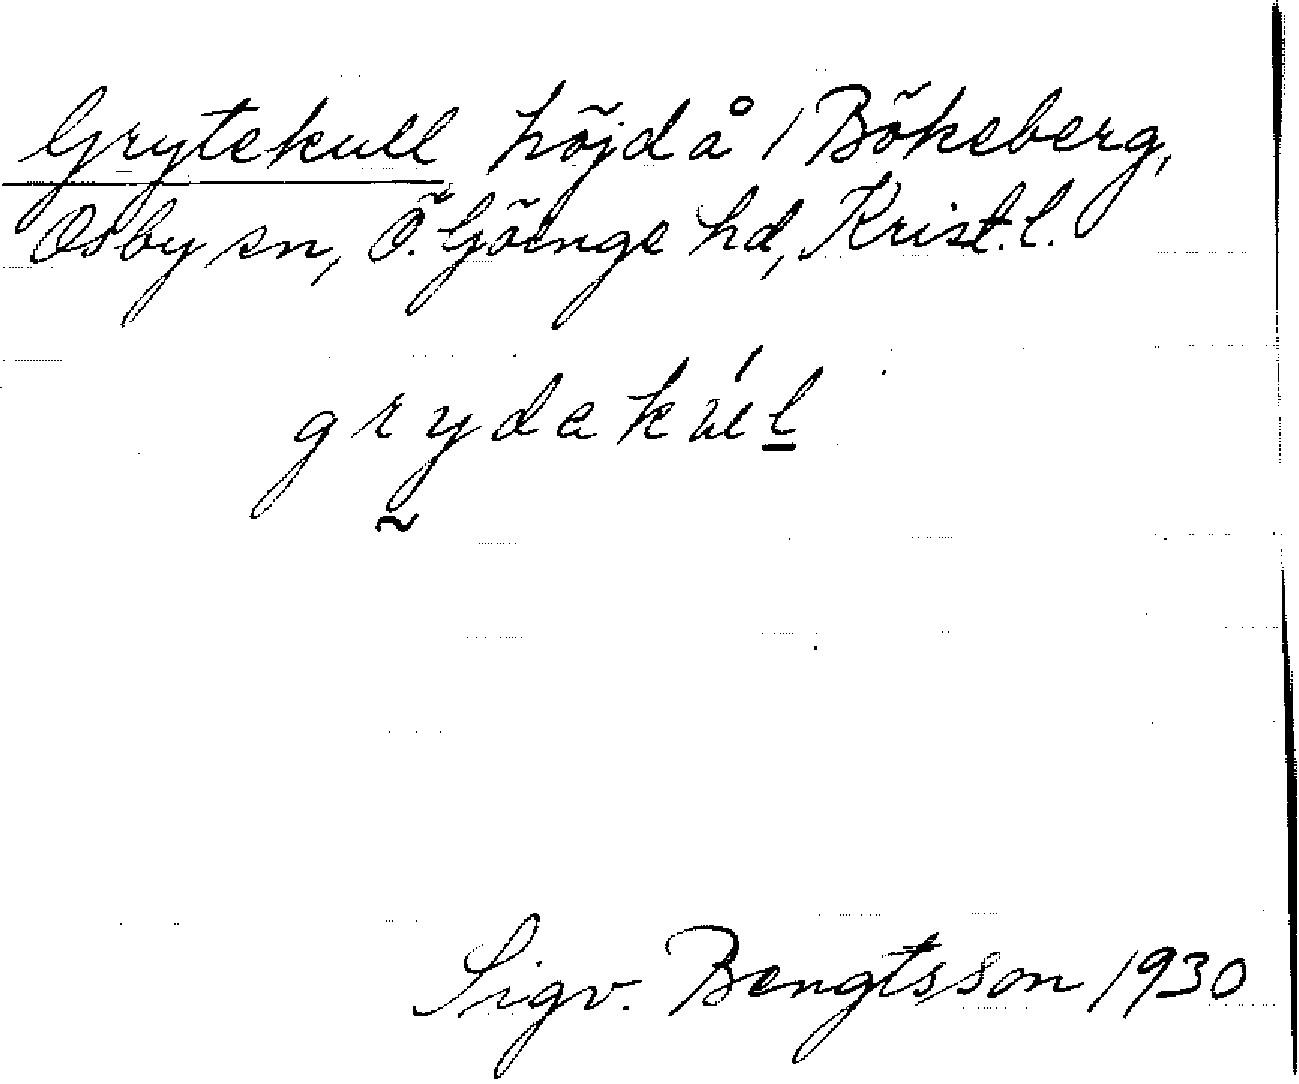 Grytekull höjd å 1 Bökeberg,
Osby sn, Ö. Göinge hd, Krist. l.
grydekul
Sigv. Bengtsson 1930